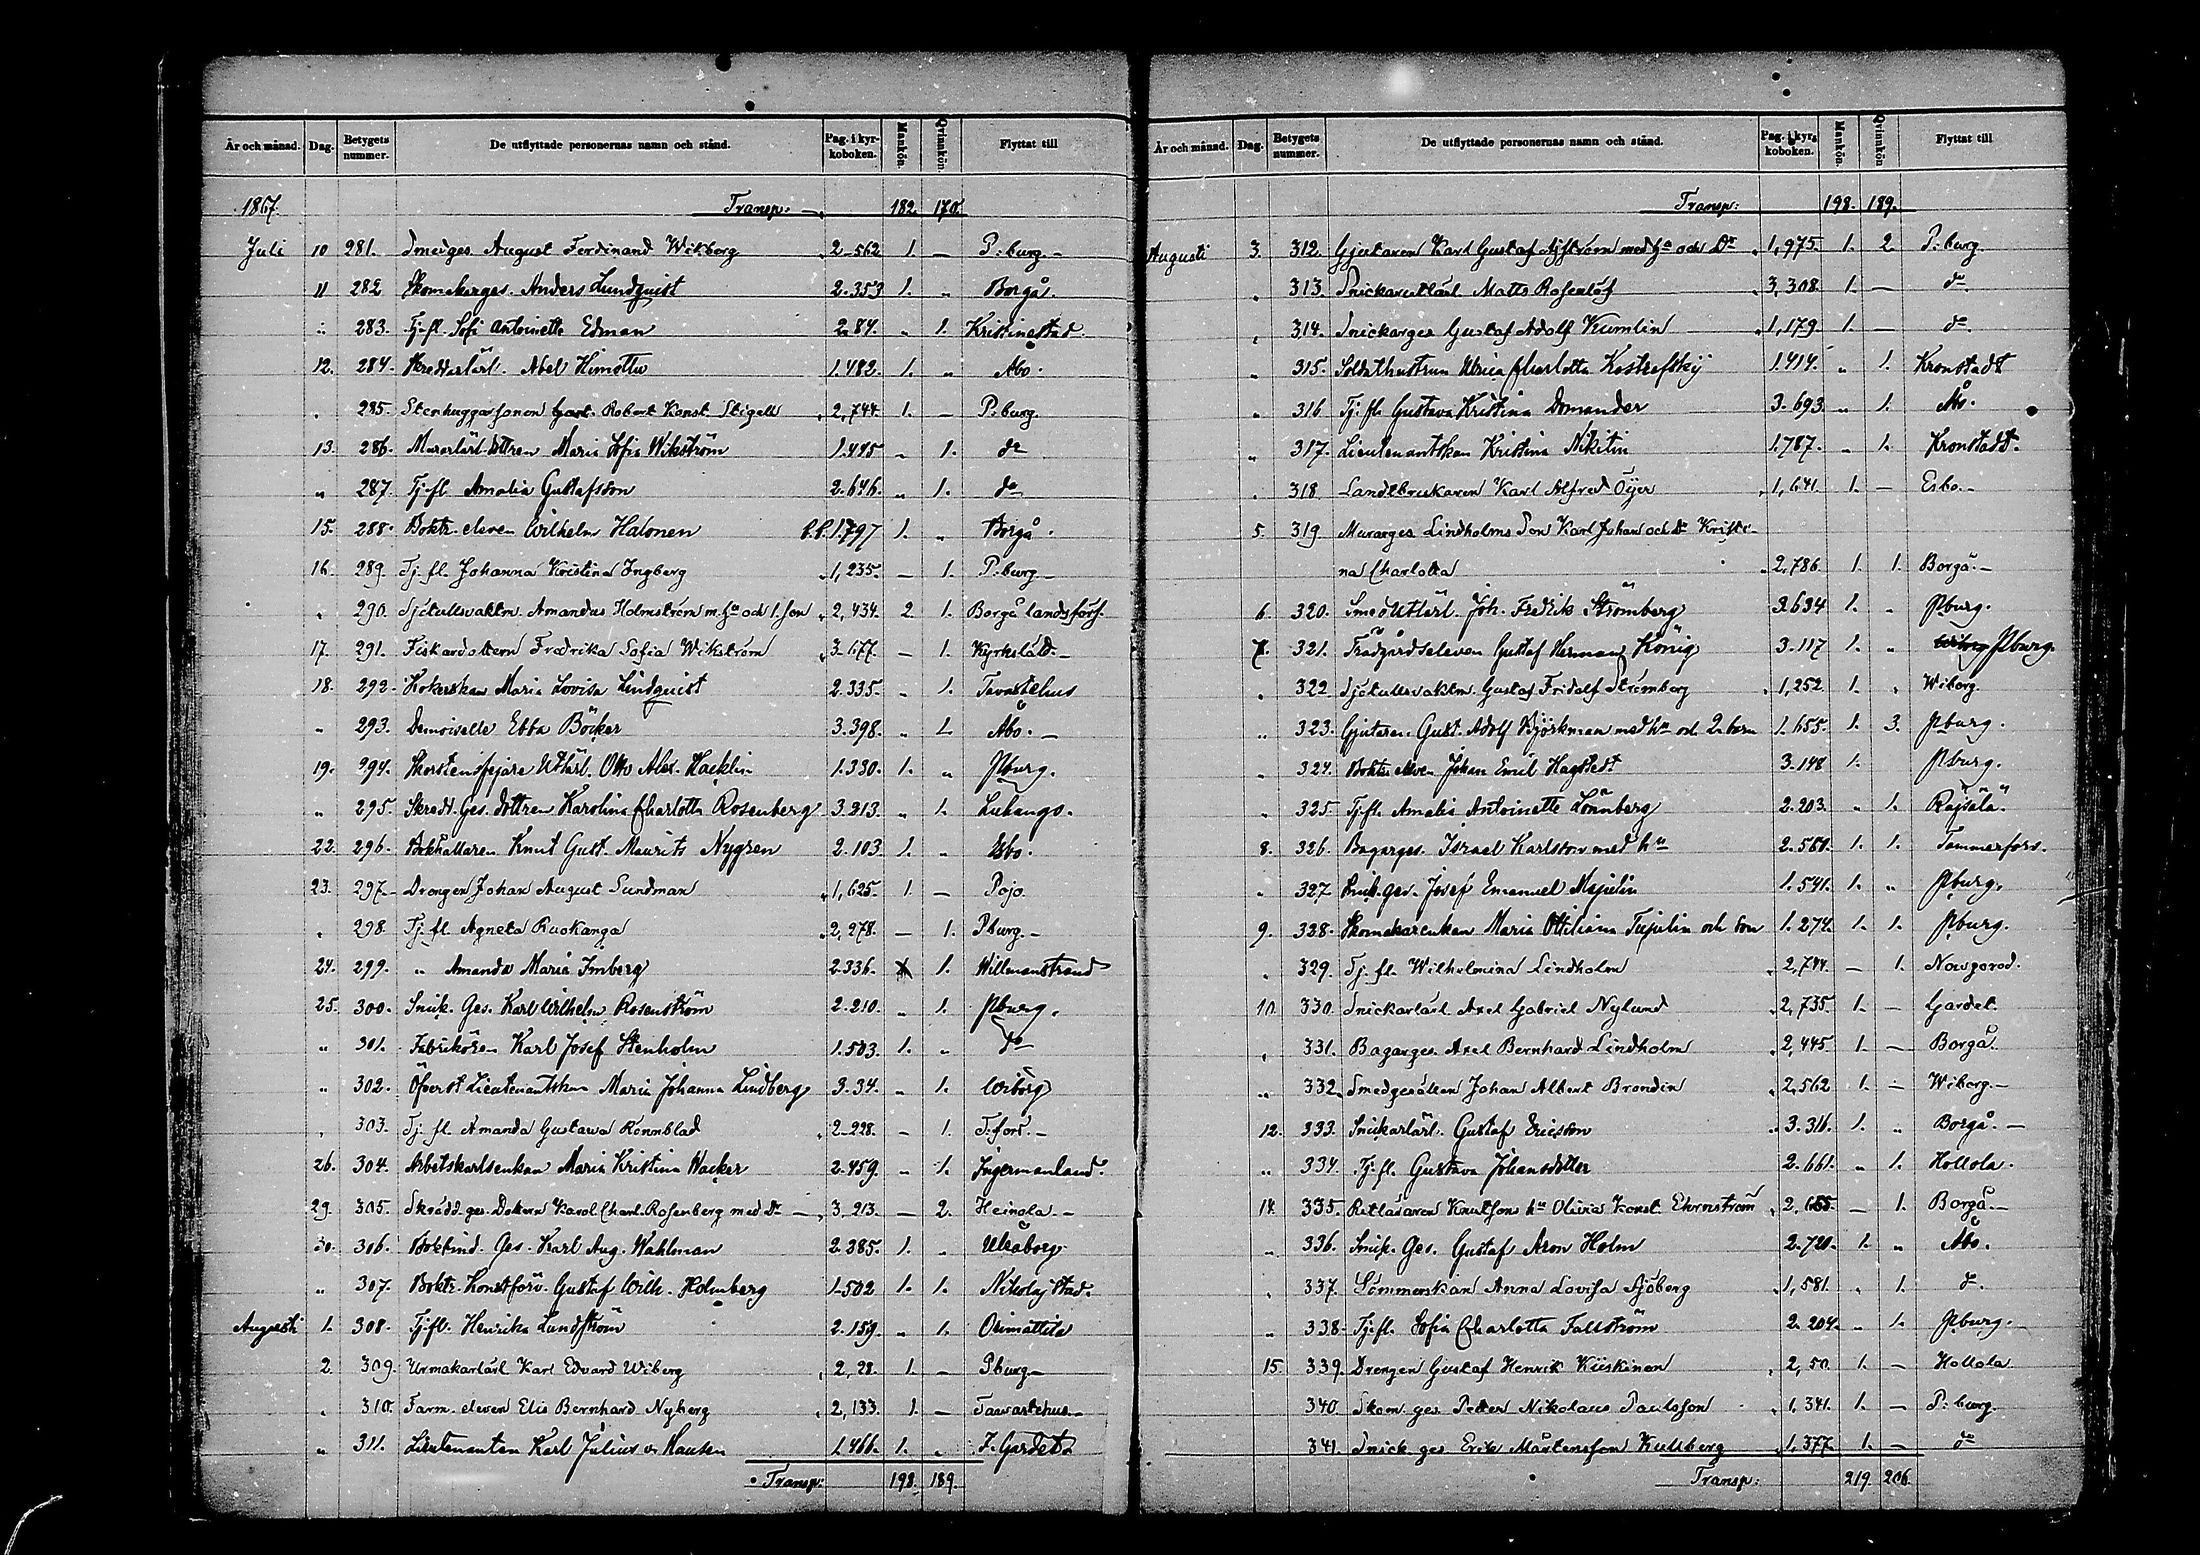 År och månad. Dag. Betygets nummer. De utflyttade personernas namn och stånd. Pag. i kyrkoboken. Mankön. Qvinnkön. Flyttat till
1867. Transp: 182. 170.
Juli 10 281. Smedges. August Ferdinand Wikberg 2-562 1. — P:burg.
11 282 Skomakarges. Anders Lundquist 2.353 1. „ Borgå.
„ 283. Tj.fl. Sofi Antoinette Edman 2.84. „ 1. Kristinestad.
12. 284. Skreddarlärl. Abel Himottu 1.482. 1. „ Åbo.
„ 285. Stenhuggarsonen Robert Konst. Stigell 2,744. 1. — P:burg.
13. 286. Murarlärl. dottren Maria Sofia Wikström 1.495 „ 1. do
„ 287. Tj.fl. Amalia Gustafsson 2.646. „ 1. do
15. 288. Boktr. eleven Wilhelm Halonen 1.797 1. „ Borgå.
16. 289. Tj. fl. Johanna Kristina Ingberg 1,235. — 1. P:burg
„ 290. Sjötullsvaktm. Amandus Holmström m. hu och 1. son 2,434. 2. 1. Borgå landsförs.
17. 291. Fiskardottern Fredrika Sofia Wikström 3.677. — 1. Kyrkslätt
18. 292. Kokerskan Maria Lovisa Lindquist 2.335. „ 1. Tavastehus
„ 293. Demoiselle Ebba Böcker 3.398. „ 1. Åbo.
19. 294. Skorstensfejare Utlärl. Otto Alex. Hacklin 1.330. 1. „ Pburg.
„ 295. Skredd. Ges. dottren Karolina Charlotta Rosenberg 3.213. „ 1. Luhango.
22. 296. Bokhållaren Knut Gust. Maurits Nygren 2.103. 1. „ Esbo.
23. 297. Drengen Johan August Sundman 1,625. 1. — Pojo.
„ 298. Tj. fl. Agneta Ruokanga 2,278. — 1. Pburg.
24. 299. „ Amanda Maria Imberg 2.336. 1. Willmanstrand
25. 300. Snick. Ges. Karl Wilhelm Rosenström 2.210. „ 1. Pburg.
„ 301. Fabrikören Karl Josef Stenholm 1.503. 1. „ do
„ 302. Öfverst Lieutenantskan Maria Johanna Lindberg 3.34. „ 1. Wiborg
„ 303. Tj. fl. Amanda Gustava Rönnblad 2.228. — 1. T:fors.
26. 304. Arbetskarlsenkan Maria Kristina Wacker 2.459. „ 1. Ingermanland.
29. 305. Skrädd. ges. Dottern Karol. Charl. Rosenberg med dr 3,213. — 2. Heinola
30. 306. Bokbind. Ges. Karl Aug. Wahlman 2.385. 1. „ Uleåborg.
„ 307. Boktr. Konstförv. Gustaf Wilh. Holmberg 1.502 1. 1. Nikolajstad.
Augusti 1. 308. Tj.fl. Henrika Lundström 2.159. „ 1. Orimattila
2. 309. Urmakarlärl. Karl Edvard Wiberg 2,28. 1. — Pburg
„ 310. Farm. eleven Elis Bernhard Nyberg 2,133. 1. — Tavastehus
„ 311. Lieutenanten Karl Julius v. Hausen 1.466. 1. „ F. Gardet.
Transp: 198. 189.
År och månad. Dag. Betygets nummer. De utflyttade personernas namn och stånd. Pag. i kyrkoboken. Mankön. Qvinnkön Flyttat till
Transp: 198. 189.
Augusti 3. 312. Gjutaren Karl Gustaf Nyström med hu och Dr 1,975. 1. 2. P:burg
„ 313. Snickarutlärl. Matts Rosenlöf 3,308. 1. — do
„ 314. Snickarges Gustaf Adolf Kumlin 1,179. 1. — do
„ 315. Soldathustrun Ulrica Charlotta Kostrefsky 1.414. „ 1. Kronstadt
„ 316. Tj. fl. Gustava Kristina Domander 3.693 „ 1. Åbo.
„ 317. Lieutenantskan Kristina Nikitin 1.787. „ 1. Kronstadt.
„ 318. Landtbrukaren Karl Alfred Öyer 1,641. 1. — Esbo.
5. 319 Murarges Lindholms Son Karl Johan och Dr Kristi-
na Charlotta 2,786. 1. 1. Borgå.
6. 320. Smed Utlärl. Joh. Fredrik Strömberg 3.634 1. „ Pburg.
7. 321. Trädgårdseleven Gustaf Herman König 3.117 1. „ Pburg.
„ 322 Sjötullsvaktm. Gustaf Fridolf Strömberg 1,252. 1. „ Wiborg.
„ 323. Gjutaren Gust. Adolf Björkman med hu och 2 barn 1.655. 1. 3. Pburg.
„ 324. Boktr. eleven Johan Emil Hagstedt 3.148 1. Pburg.
„ 325. Tj.fl. Amalia Antoinette Lönnberg 2.203. „ 1. Räisälä.
8. 326. Bagarges. Israel Karlsson med hu 2.560. 1. 1. Tammerfors.
„ 327. Snick. ges. Josef Emanuel Majulin 1.541. 1. „ Pburg.
9. 328. Skomakarenkan Maria Ottiliana Tujulin och son 1.274. 1. 1. Pburg.
„ 329. Tj. fl. Wilhelmina Lindholm 2,744. — 1. Nowgorod.
10. 330. Snickarlärl. Axel Gabriel Nylund 2,735. 1. — Gardet.
„ 331. Bagarges. Axel Bernhard Lindholm 2,445. 1. — Borgå.
„ 332. Smedgesällen Johan Albert Brandin 2,562 1. — Wiborg.
12. 333. Snickarlärl. Gustaf Ericsson 3.316. 1. „ Borgå.
„ 334. Tj.fl. Gustava Johansdotter 2.661. „ 1. Hollola.
14. 335. Knutsons hu Olivia Konst. Ehrnström 2,655. — 1. Borgå.
„ 336. Snick. Ges. Gustaf Aron Holm 2.720. 1. „ Åbo.
„ 337. Sömmerskan Anna Lovisa Sjöberg 1,581. „ 1. do
„ 338. Tj.fl. Sofia Charlotta Fallström 2.204. „ 1. Pburg.
15. 339. Drengen Gustaf Henrik Kiiskinen 2,50. 1. — Hollola
340. Skom. ges. Petter Nikolaus Paulsson 1,341. 1. — P:burg.
341. Snick. ges Erik Mårtensson Kullberg 1,377. 1. — do
Transp: 219. 206.